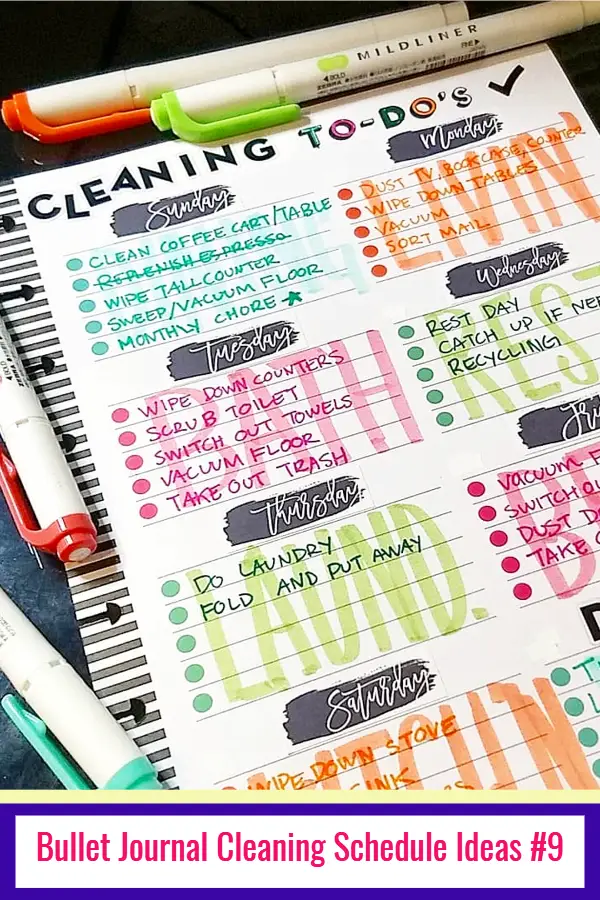 MILDLINER
BOLD
FINE
CLEANING TO-DO'S ✓
Sunday
CLEAN COFFEE CART/TABLE
REPLENISH ESPRESSO
WIPE TALL COUNTER
SWEEP/VACUUM FLOOR
MONTHLY CHORE ★
Monday
LIVIN'
DUST TV, BOOKCASE, COUNTER
WIPE DOWN TABLES
VACUUM
SORT MAIL
Tuesday
BATH
WIPE DOWN COUNTERS
SCRUB TOILET
SWITCH OUT TOWELS
VACUUM FLOOR
TAKE OUT TRASH
Wednesday
REST
REST DAY
CATCH UP IF NEE
RECYCLING
Thursday
LAUND.
DO LAUNDRY
FOLD AND PUT AWAY
Fri
BE
VACUUM F
SWITCH OU
DUST D
TAKE O
Saturday
WIPE DOWN STOVE
SINK
Bullet Journal Cleaning Schedule Ideas #9